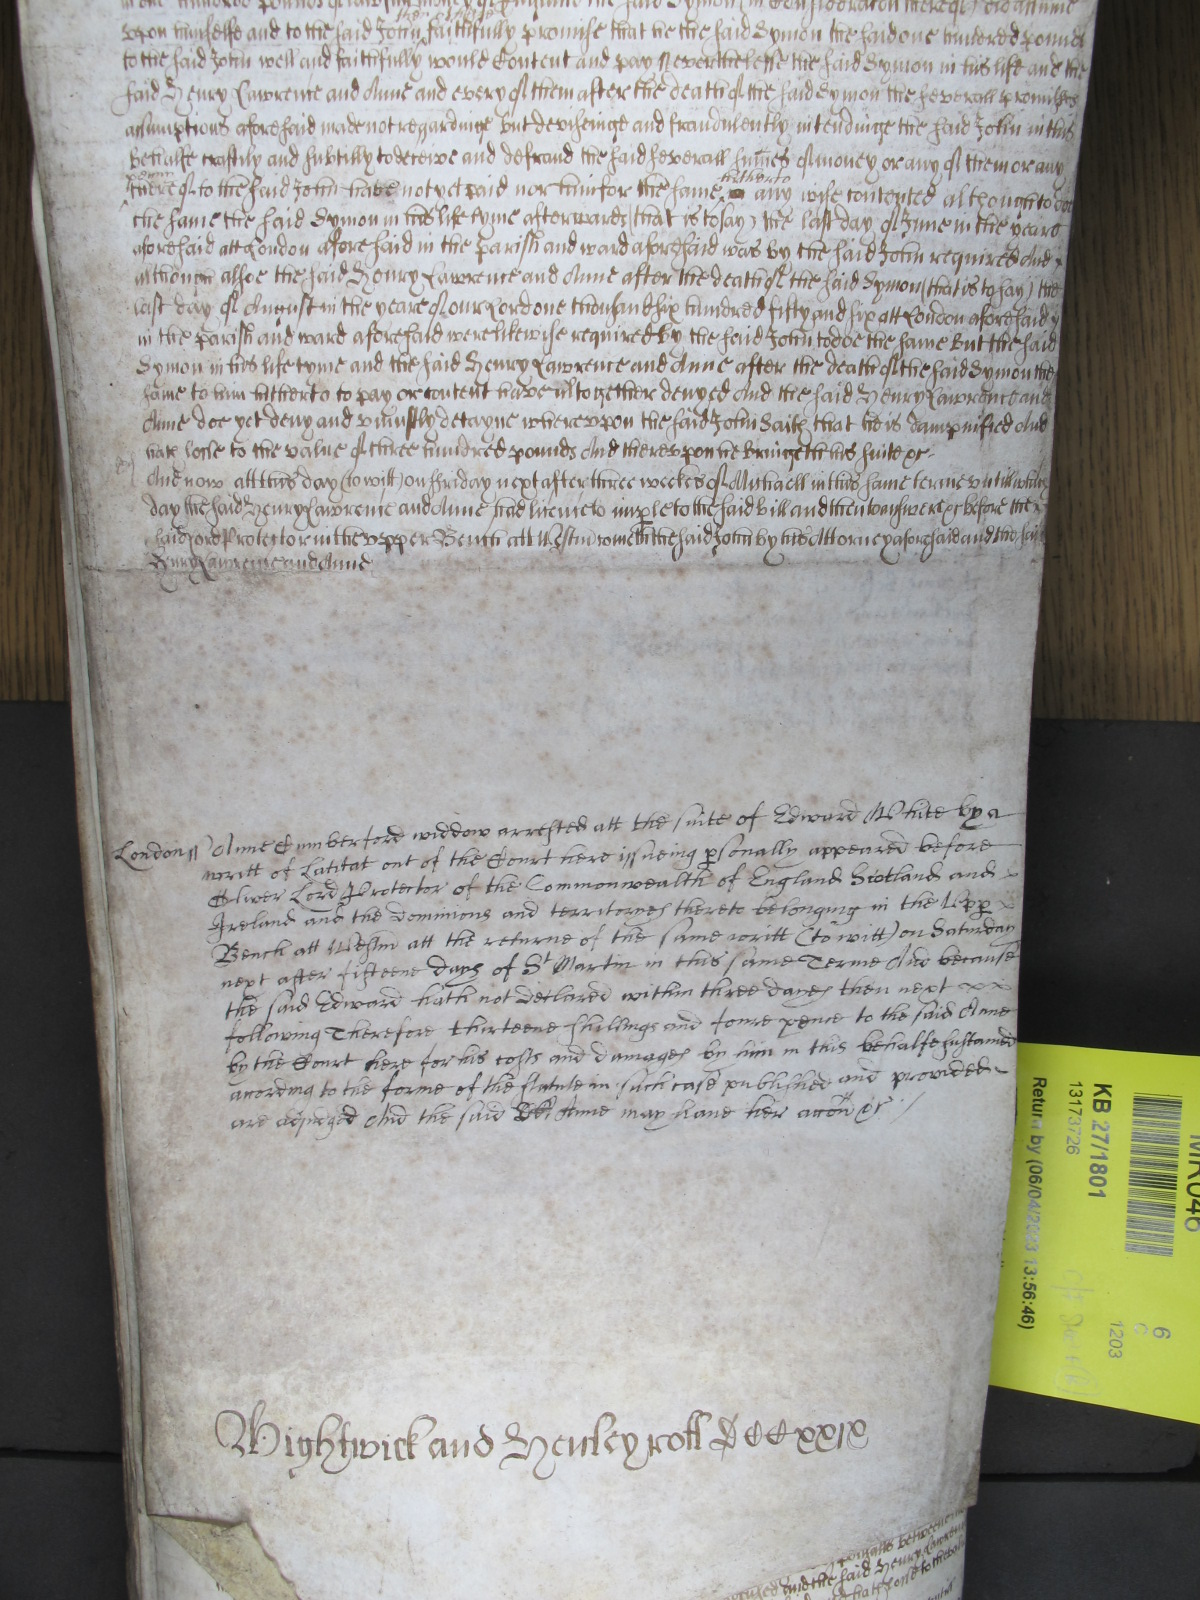 in one hundred pounds of lawfull money of England the said Symon (in Consideracon thereof) did assume
then & there
vpon himselfe and to the said John faithfully promise that he the said Symon the said one hundred pounds
to the said John well and faithfully would Content and pay Neverthelesse the said Symon in his life and the
said Henry Lawrence and Anne and every of them after the death of the said Symon the severall promises
assumptions aforesaid made not regardinge but deviseinge and fraudulently intendinge the said John in this
behalfe craftily and subtilly to deceive and defraud the said severall sumes of money or any of them or any
penny hitherto
thereof to the said John have not yet paid nor him for the same any wise contented although to doe
the same the said Symon in his life tyme afterwards (that is to say) the last day of June in the yeare
aforesaid att London aforesaid in the parish and ward aforesaid was by the said John required And
although alsoe the said Henry Lawrence and Anne after the death of the said Symon (that is to say) the
last day of August in the yeare of our Lord one thousand six hundred fifty and six att London aforesaid
in the parish and ward aforesaid were likewise required by the said John to doe the same But the said
Symon in his life tyme and the said Henry Lawrence and Anne after the death of the said Symon the
same to him hitherto to pay or content have altogether denyed And the said Henry Lawrence and
Anne doe yet deny and vniustly detayne wherevpon the said John Saith that he is dampnified And
hath losse to the value of three hundred pounds And therevpon he bringeth his suite &c
And now att this day (to witt) on Friday next after three weekes of Michaell in this same terme vntill which
day the said Henry Lawrence and Anne had licence to imple to the said bill and then to answere &c before the
said Lord Protector in the vpper Bench att Westm cometh the said John by his Attorney aforesaid and the said
Henry Lawrence and Anne
London ss Anne Cumberford widdow arrested att the suite of Edward White by a
writt of Latitat out of the Court here issueing psonally appeared before
Oliver Lord Protector of the Commonwealth of England Scotland and
Ireland and the dominions and territoryes thereto belonging in the Upp
Bench att Westm att the returne of the same writt (to witt) on Saturday
next after fifteene dayes of St Martin in this same Terme And because
the said Edward hath not declared within three dayes then next
following Therefore thirteene shillings and foure pence to the said Anne
by the Court here for his costs and damages by him in this behalfe sustained
according to the forme of the statute in such case published and provided
are adjudged And the said Anne may have her accon &c
Wightwick and Henley roll DCCxxix
KB 27/1801
13173726
Return by (06/04/2023 13:56:46)
MR046
6
C
1203